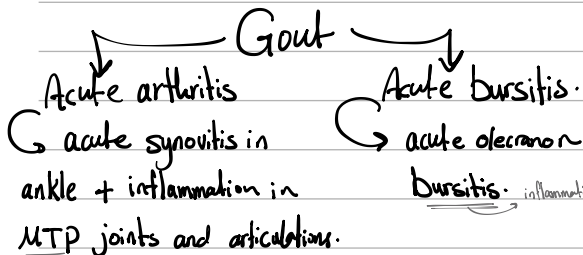 Gout
Acute arthritis
acute synovitis in
ankle + inflammation in
MTP joints and articulations.
Acute bursitis.
acute olecranon
bursitis.